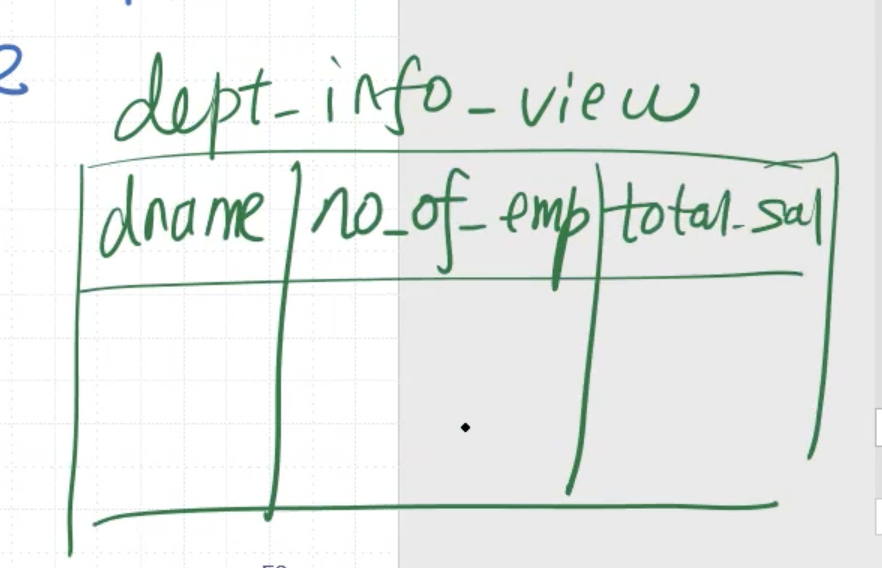 dept_info_view
dname no_of_emp total_sal